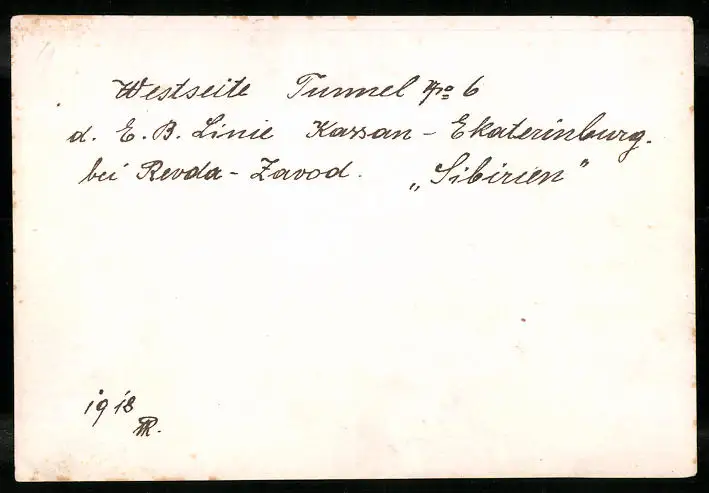 Westseite Tunnel No 6
d. E. B. Linie Kassan - Ekaterinburg.
bei Revda - Zavod. „Sibirien"
1918
R.